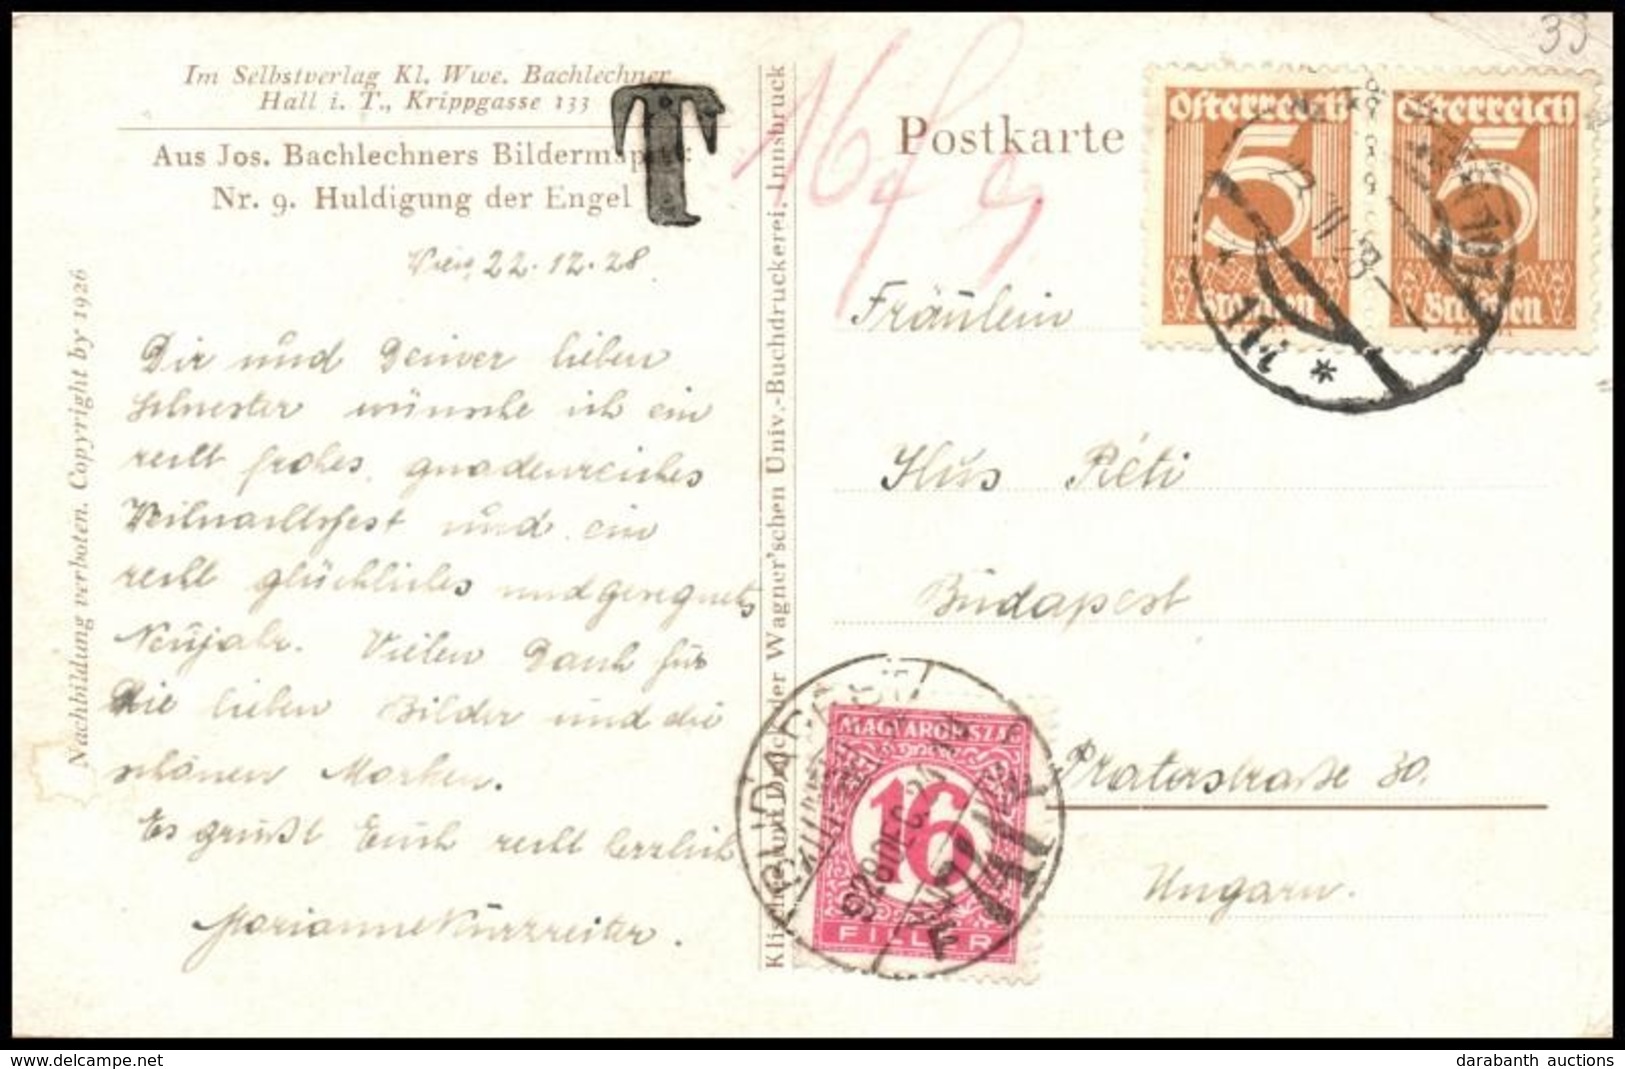 Im Selbstverlag Kl. Wwe. Bachlechner
Hall i. T., Krippgasse 133
Aus Jos. Bachlechners Bildermappe:
Nr. 9. Huldigung der Engel
T
Wien, 22.12.28.
Dir und Deiner lieben
Schwester wünsche ich ein
recht frohes, gnadenreiches
Weihnachtsfest und ein
recht glückliches und gesegnetes
Neujahr. Vielen Dank für
die lieben Bilder und die
schönen Marken.
Es grüßt Euch recht herzlich
Marianne Kurzreiter.
Nachbildung verboten. Copyright by 1926
Klischee und Druck der Wagner'schen Univ.-Buchdruckerei, Innsbruck
Postkarte
16 f
39
Österreich
5
Groschen
Österreich
5
Groschen
Fräulein
Réti
Budapest
Praterstraße 30.
Ungarn.
BUDAPEST
928 DEC 24
MAGYARORSZÁG
16
FILLÉR
www.delcampe.net
darabanth auctions